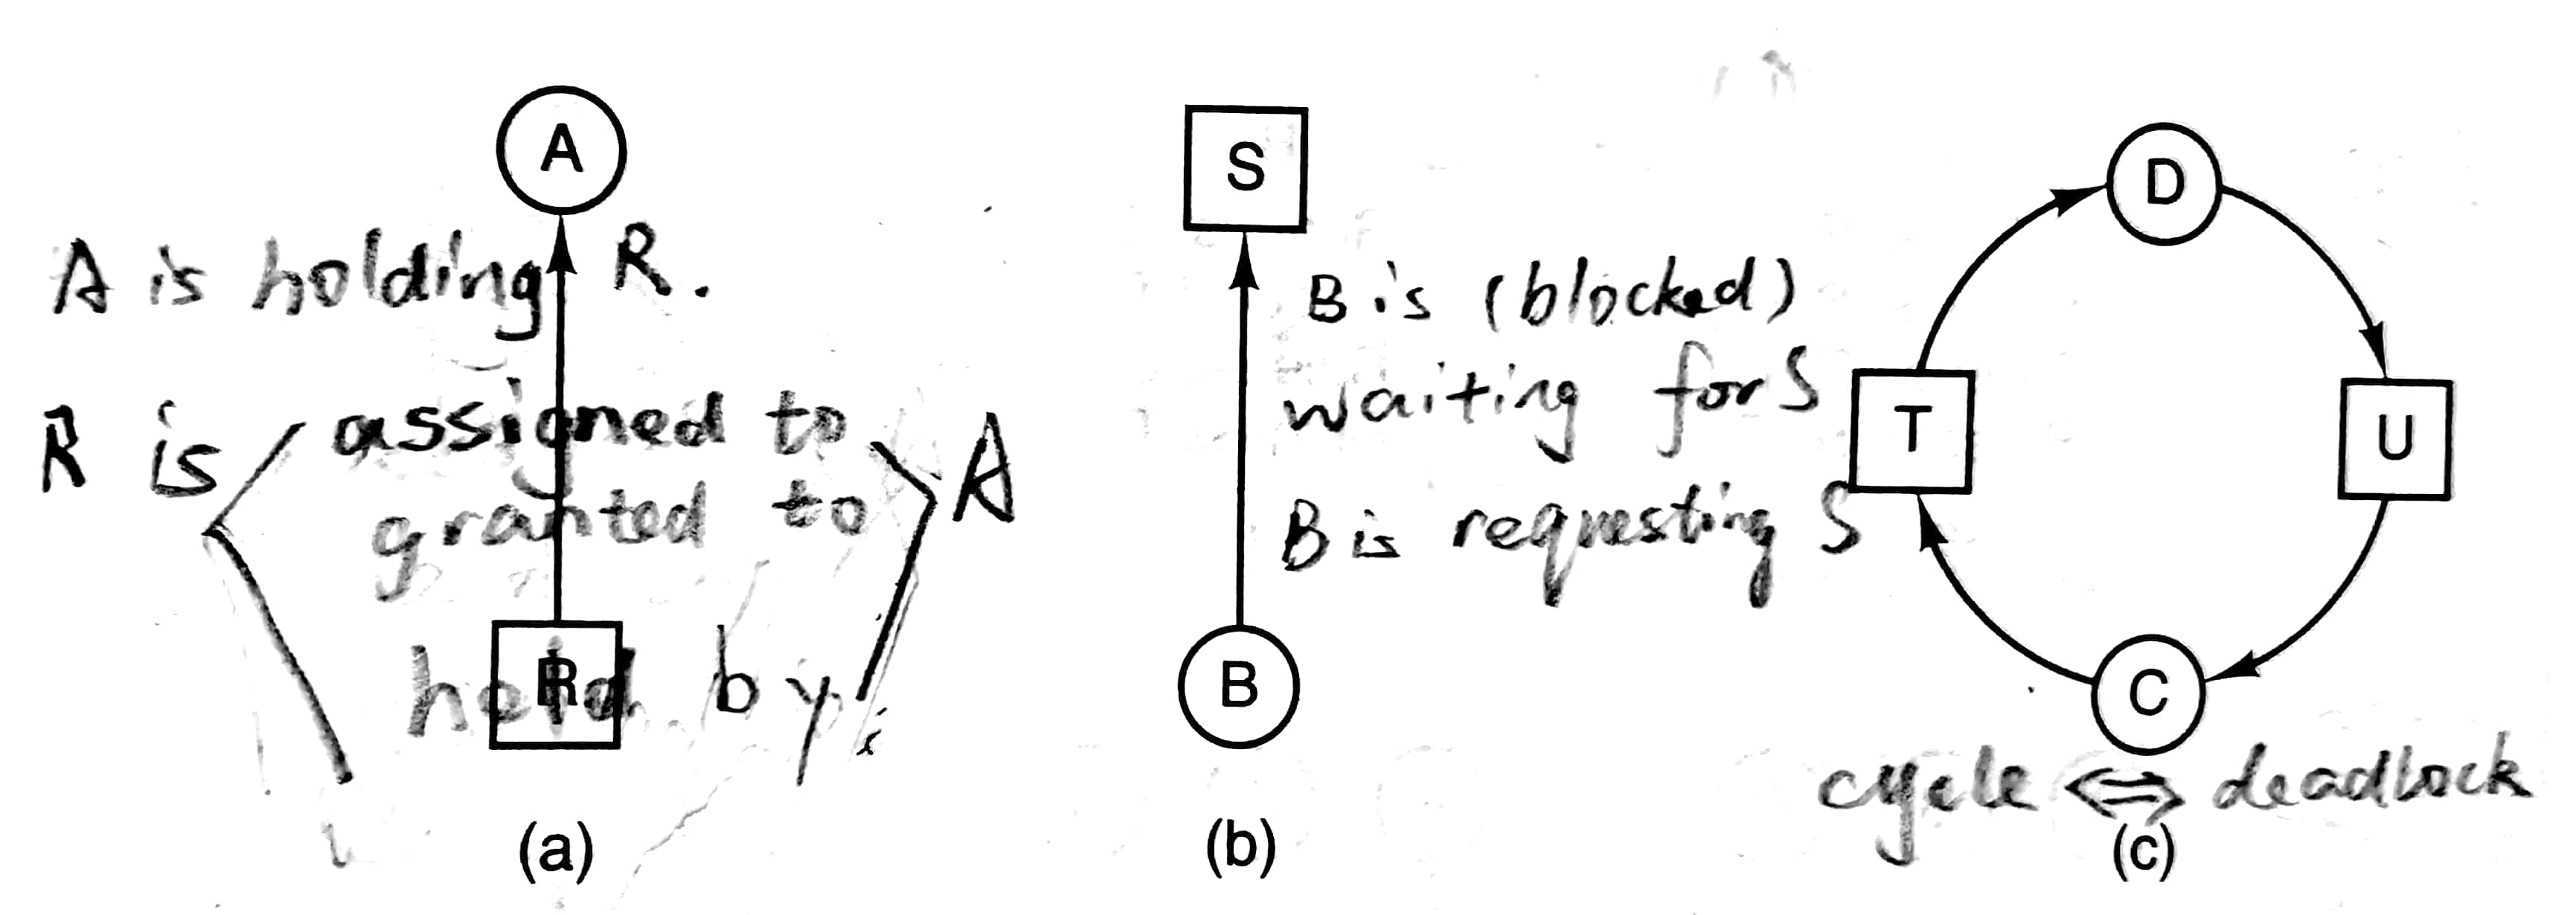 A
A is holding R.
R is assigned to A
granted to
held by
R
(a)
S
B is (blocked)
waiting for S
B is requesting S
B
(b)
D
T
U
C
cycle ⇔ deadlock
(c)